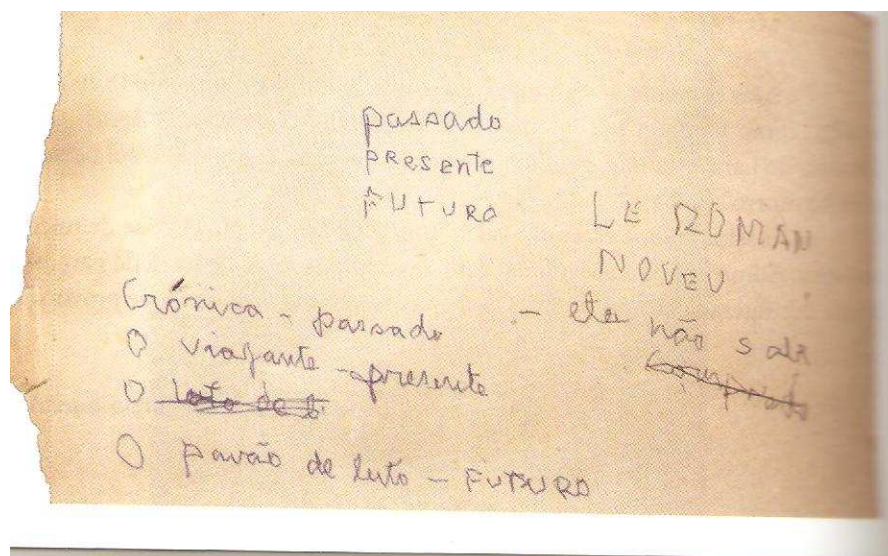 passado
presente
FUTURO
LE ROMAN
NOVEU
Crónica - passado
- ela não sabe
O viajante - presente
O luto de
O pavão de luto - FUTURO